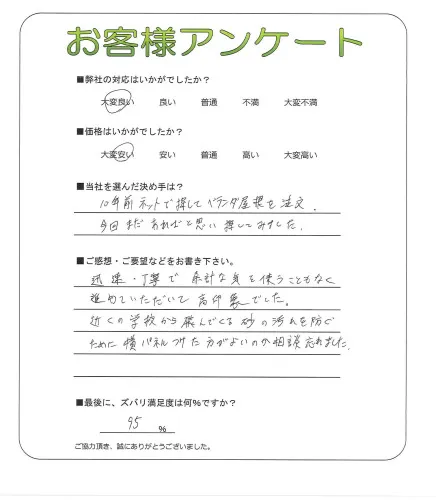 お客様アンケート
■弊社の対応はいかがでしたか？
大変良い 良い 普通 不満 大変不満
■価格はいかがでしたか？
大変安い 安い 普通 高い 大変高い
■当社を選んだ決め手は？
10年前ネットで探してベランダ屋根を注文．
今回まだあればと思い探してみました．
■ご感想・ご要望などをお書き下さい。
迅速・丁寧で余計な気を使うこともなく
進めていただいて高印象でした。
近くの学校から飛んでくる砂の汚れを防ぐ
ために横パネルつけた方がよいのか相談忘れました．
■最後に、ズバリ満足度は何％ですか？
95 ％
ご協力頂き、誠にありがとうございました。